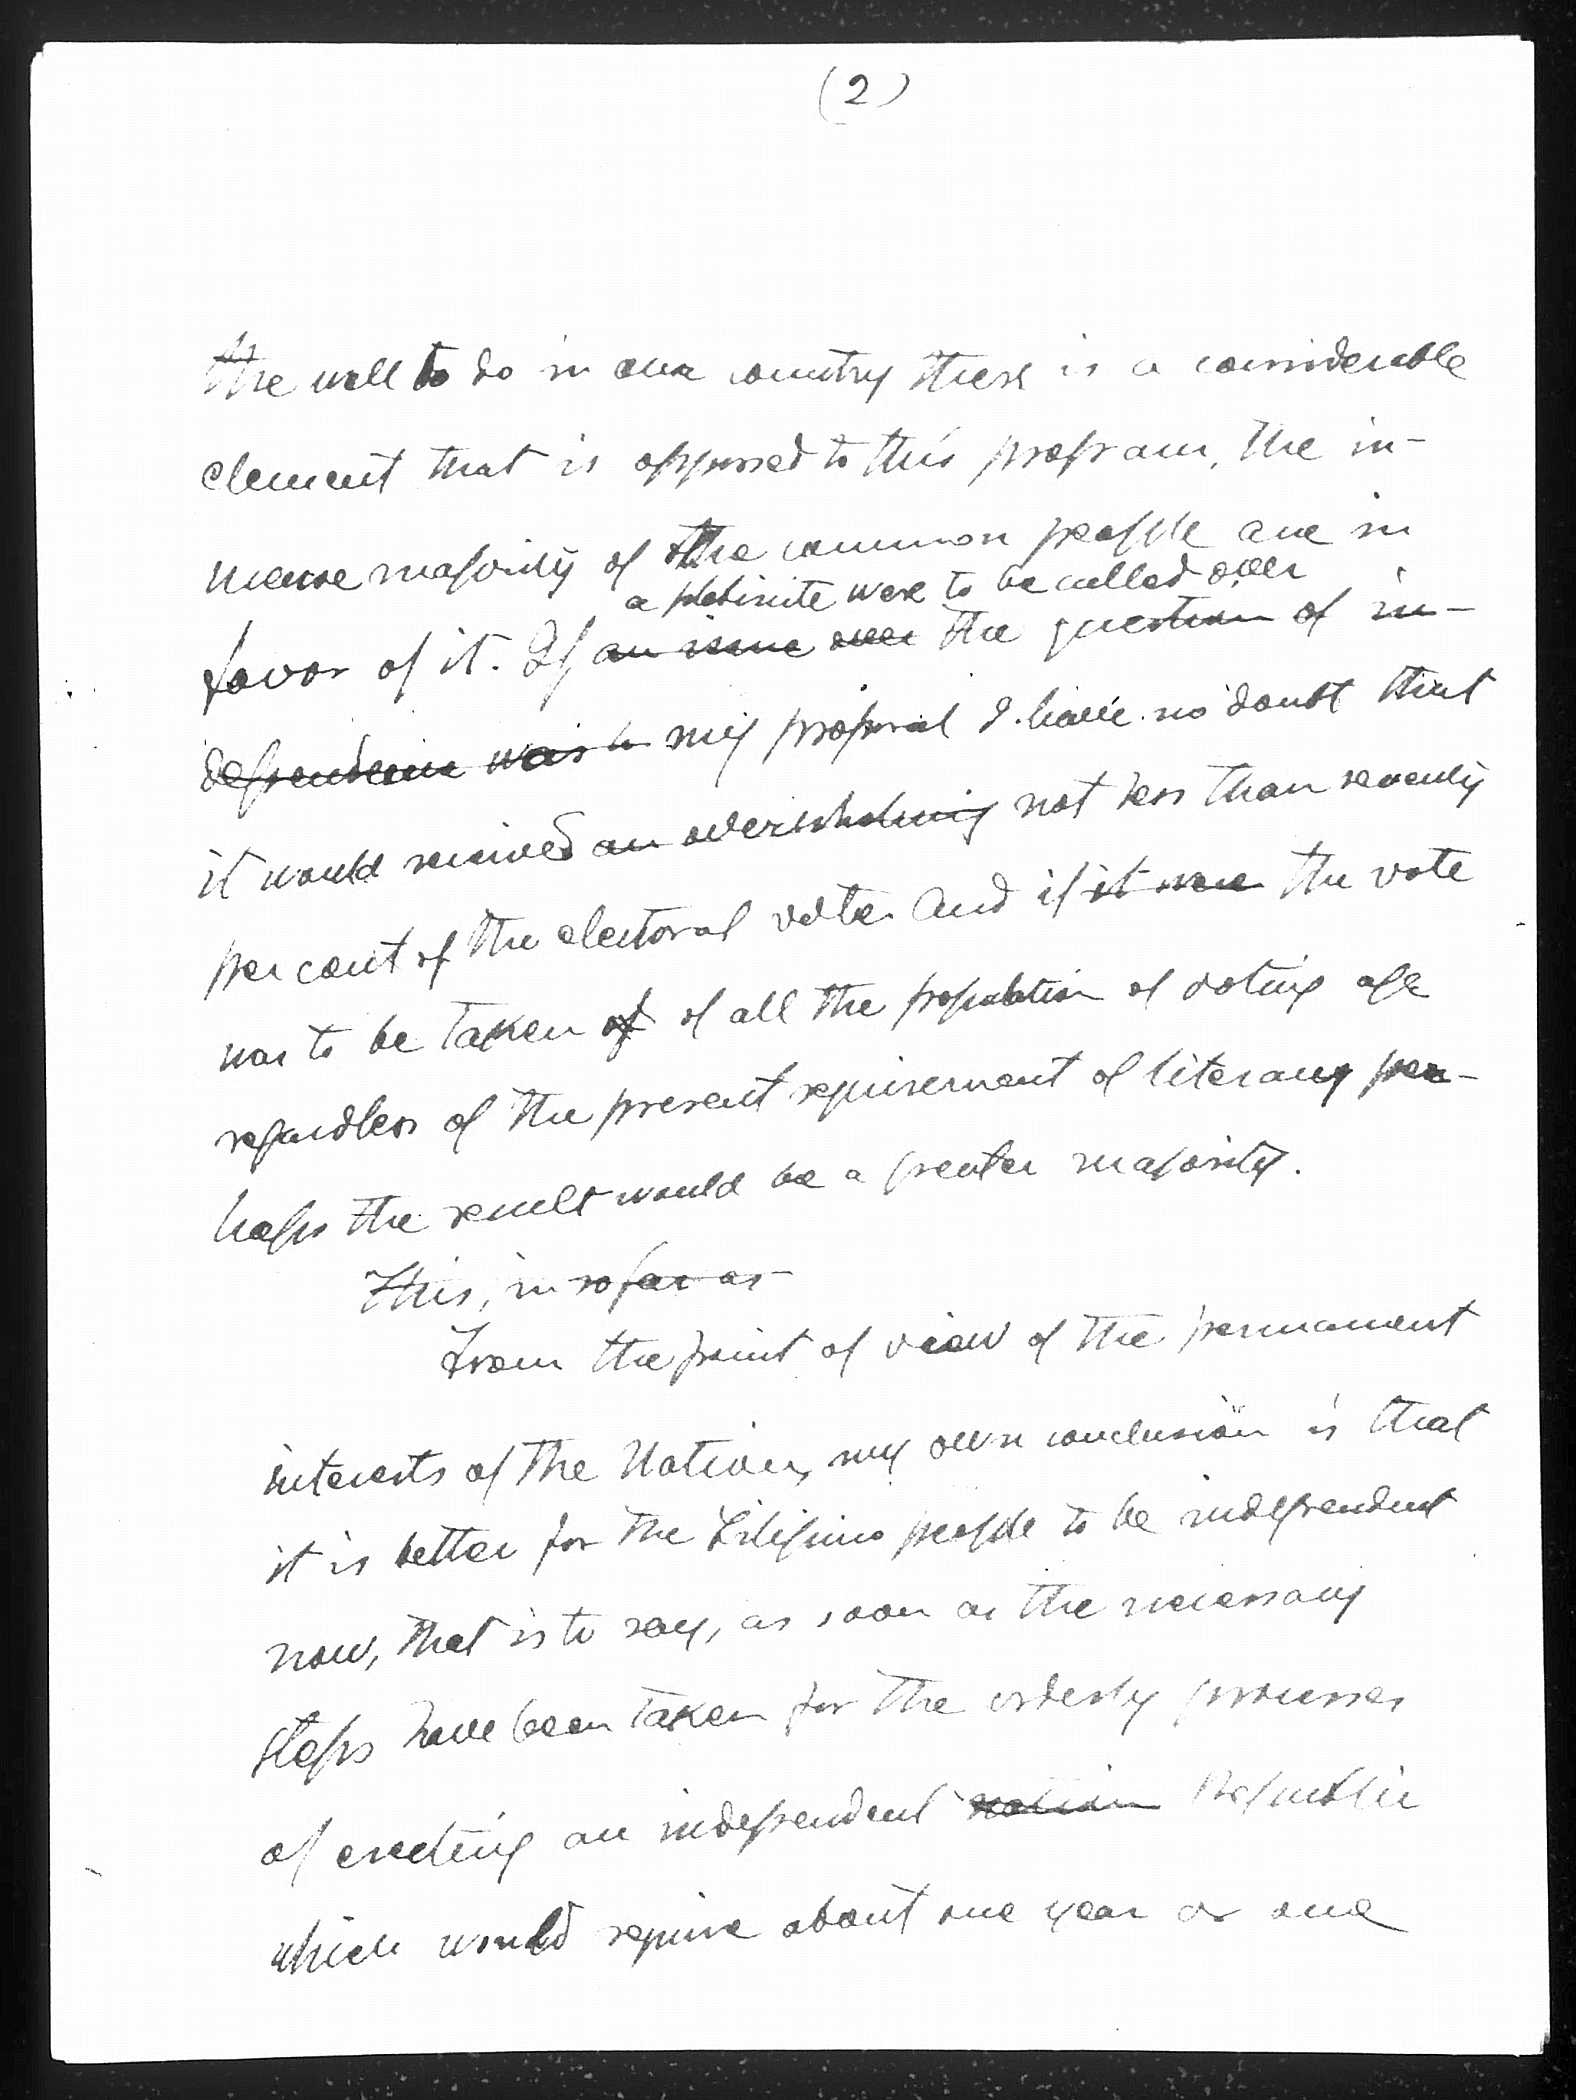 (2)
the well to do in our country there is a considerable
element that is opposed to this program, the im-
mense majority of the common people are in
a plebisite were to be called over
favor of it. If an issue over the question of in-
dependence was to my proposal I have no doubt that
it would received an overwhelming not less than seventy
per cent of the electoral vote and if it were the vote
was to be taken of of all the population of voting age
regardless of the present requirement of literacy per-
haps the result would be a greater majority.
This, in so far as
From the point of view of the permanent
interests of the Nation, my own conclusion is that
it is better for the Filipino people to be independent
now, that is to say, as soon as the necessary
steps have been taken for the orderly processes
of erecting an independent nation Republic
which would require about one year or one